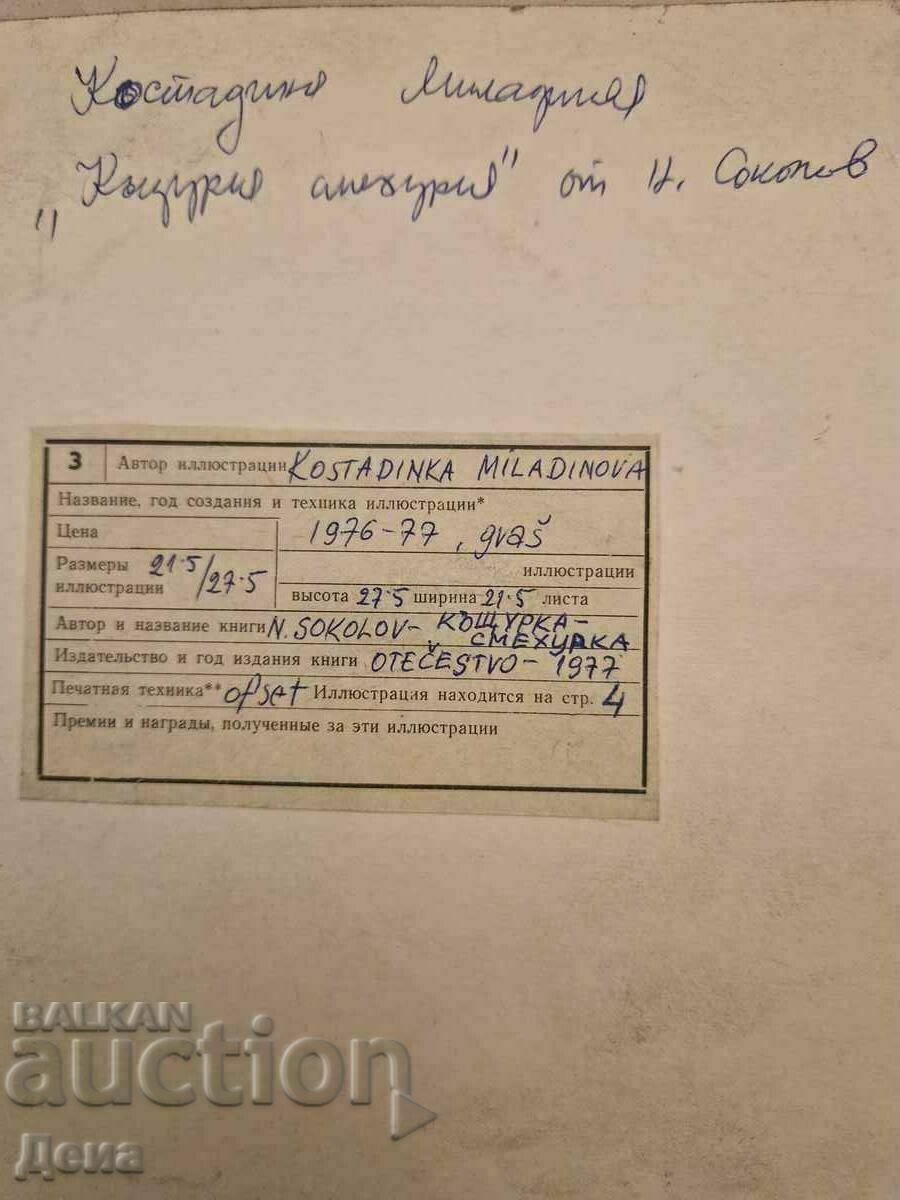 Костадинка
„Къщурка смехурка" от Н. Соколов
3 Автор иллюстрации KOSTADINKA MILADINOVA
Название, год создания и техника иллюстрации*
Цена 1976-77, gvaš
Размеры иллюстрации 21.5/27.5
иллюстрации
высота 27.5 ширина 21.5 листа
Автор и название книги N. SOKOLOV - КЪЩУРКА-
СМЕХУРКА
Издательство и год издания книги OTEČESTVO - 1977
Печатная техника** ofset Иллюстрация находится на стр. 4
Премии и награды, полученные за эти иллюстрации
BALKAN
auction
Дена